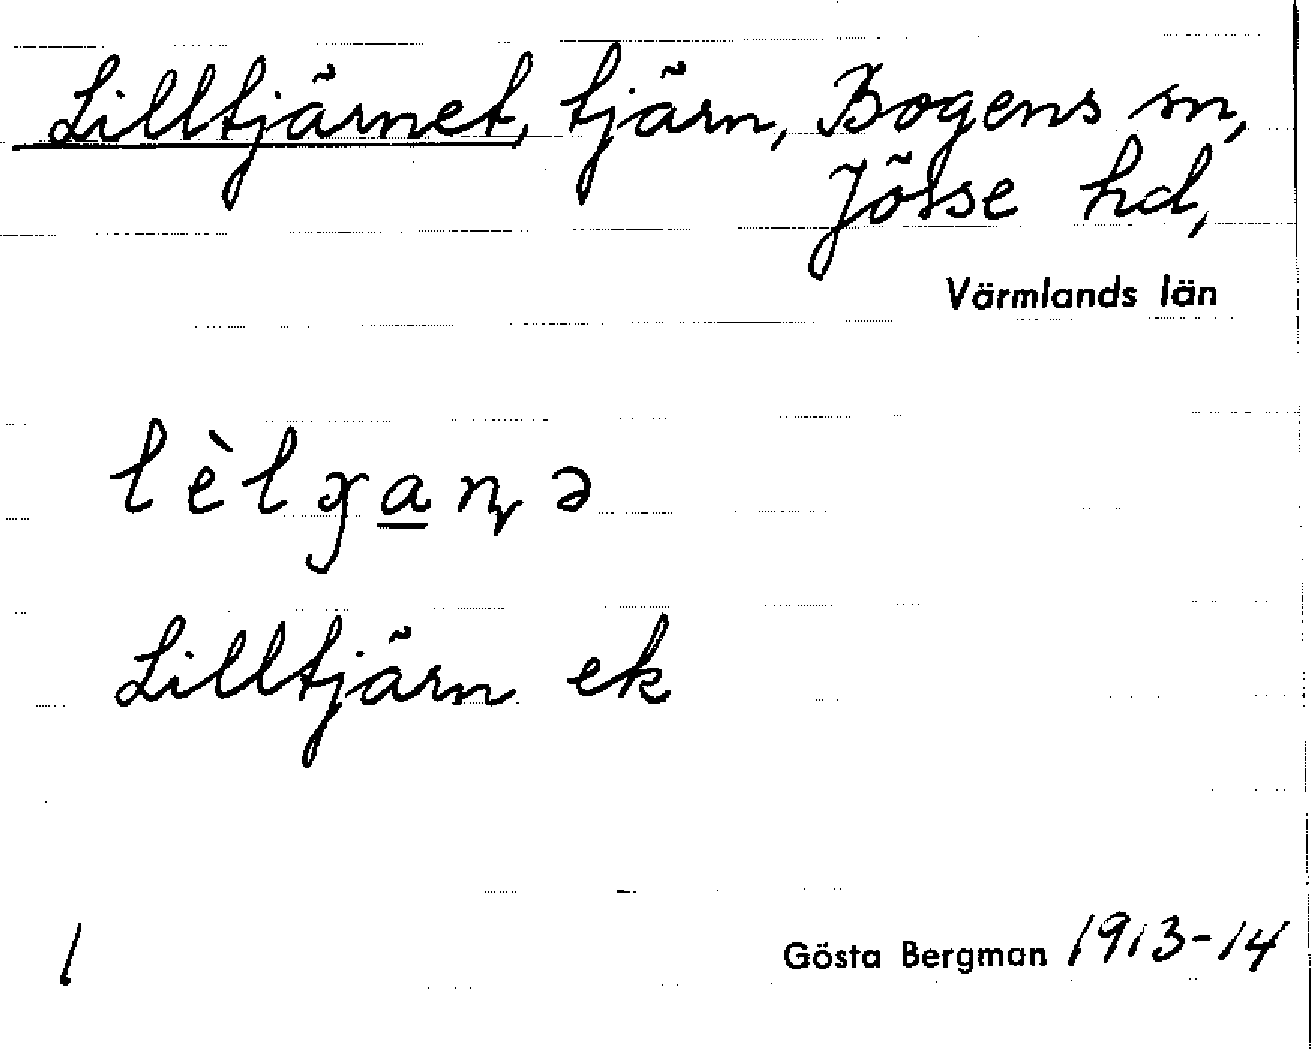 Lilltjärnet, tjärn, Bogens sn,
Jösse hd,
Värmlands län
lèlɣa̲ɳə
Lilltjärn ek
1
Gösta Bergman 1913-14